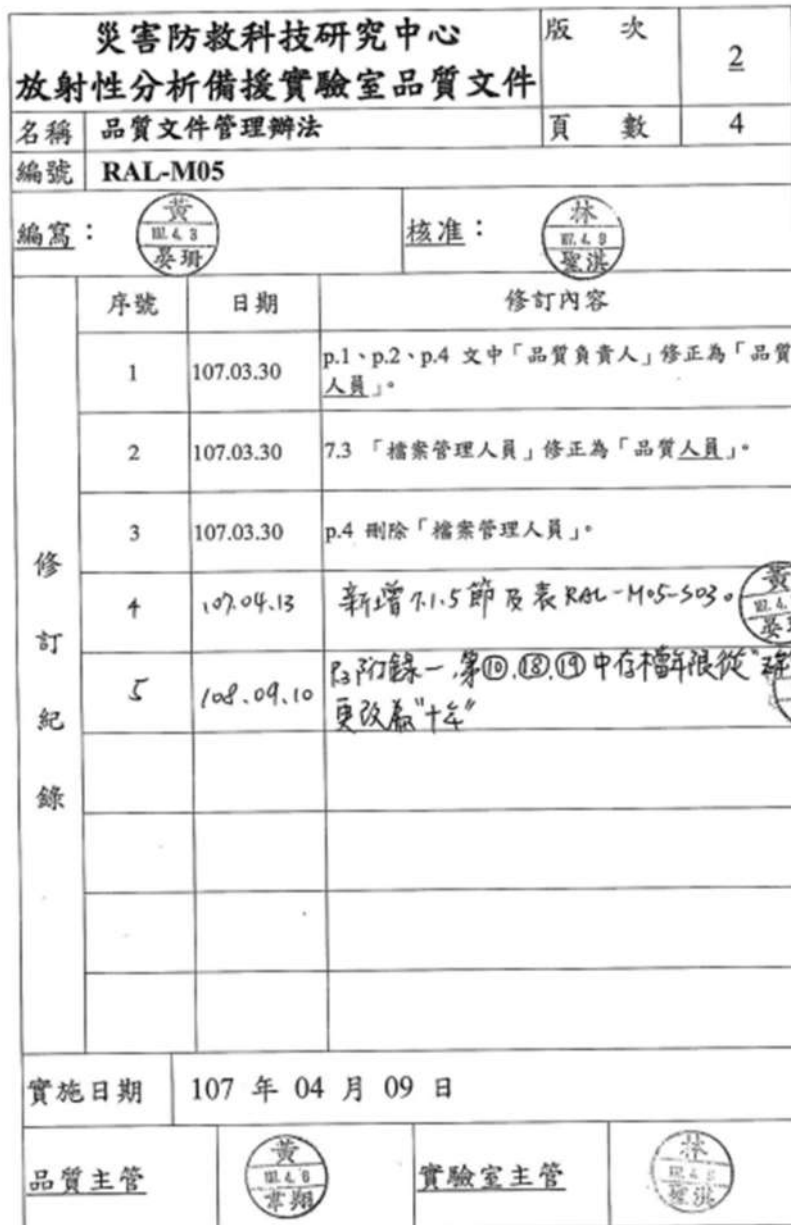 災害防救科技研究中心
放射性分析備援實驗室品質文件
版 次
2
名稱 品質文件管理辦法
頁 數 4
編號 RAL-M05
編寫：
黃
107.4.3
晏珊
核准：
林
107.4.9
聖淇
修訂紀錄
序號 日期 修訂內容
1 107.03.30 p.1、p.2、p.4 文中「品質負責人」修正為「品質
人員」。
2 107.03.30 7.3 「檔案管理人員」修正為「品質人員」。
3 107.03.30 p.4 刪除「檔案管理人員」。
4 107.04.13 新增7.1.5節及表RAL-M05-S03。
黃
5 108.09.10 P3附錄一,第⑩,⑱,⑲中存檔年限從"
更改為"十年"
實施日期 107 年 04 月 09 日
品質主管
黃
韋翔
實驗室主管
林
聖淇